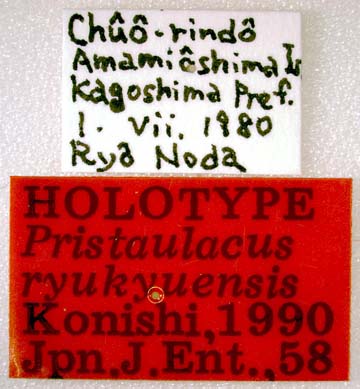 Chûô-rindô
Amamiôshima Is
Kagoshima Pref.
1. vii. 1980
Ryô Noda
HOLOTYPE
Pristaulacus
ryukyuensis
Konishi, 1990
Jpn. J. Ent., 58